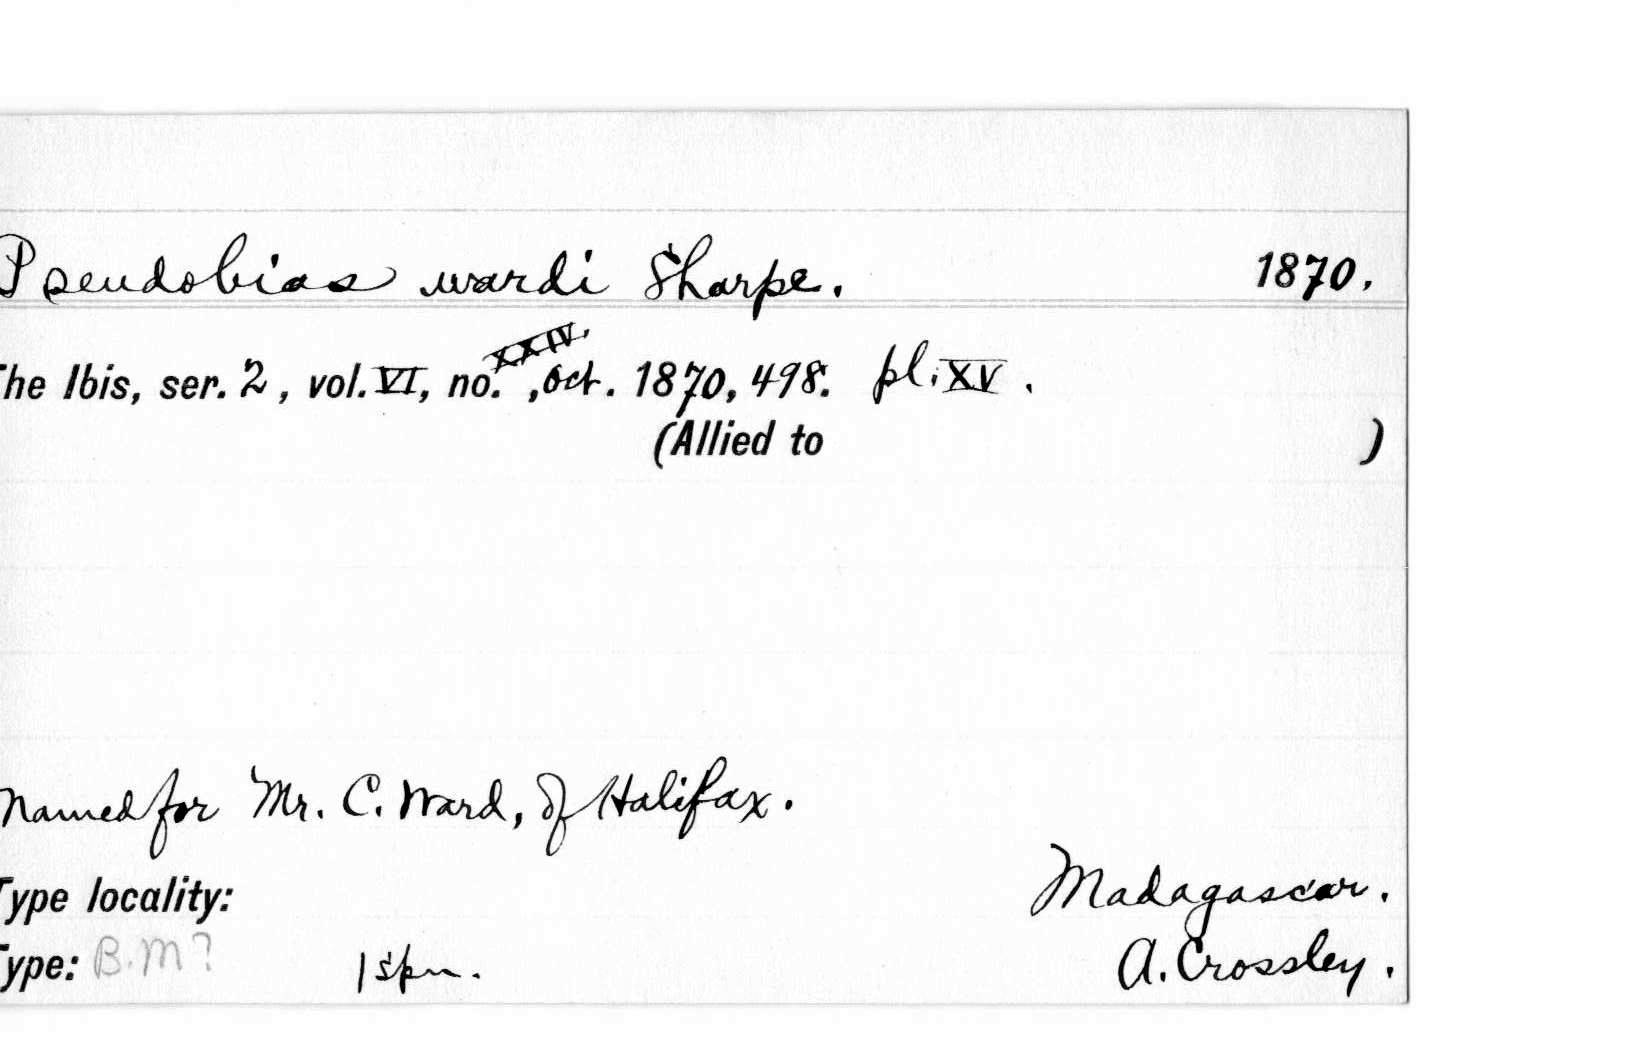 Pseudobias wardi Sharpe. 1870.
The Ibis, ser. 2, vol. VI, no. XXIV, Oct. 1870, 498. pl. XV.
(Allied to )
Named for Mr. C. Ward, of Halifax.
Type locality: Madagascar.
Type: B.M? 1 spm. A. Crossley.